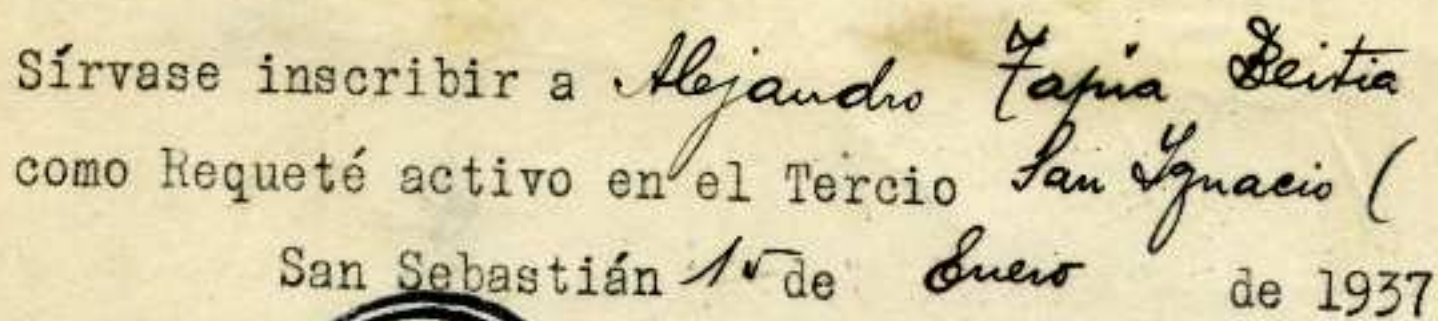 Sírvase inscribir a Alejandro Tapia Beitia
como Requeté activo en el Tercio San Ignacio (
San Sebastián de Enero de 1937